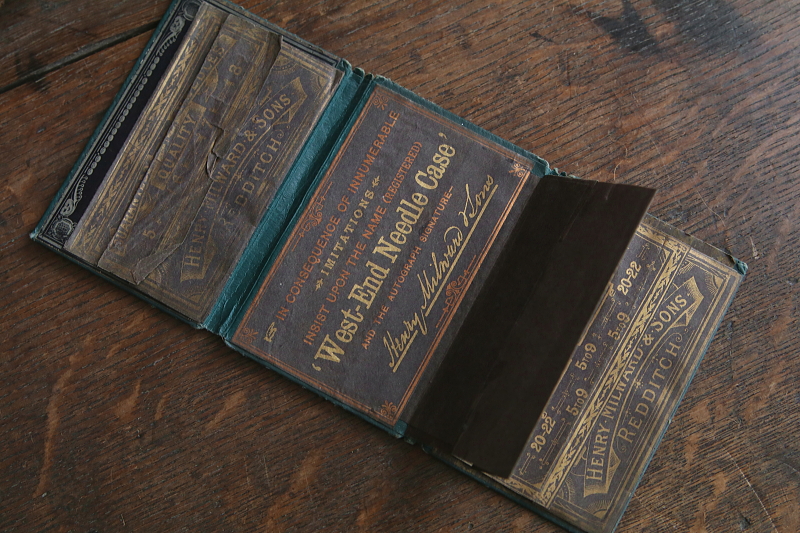 QUALITY
HENRY MILWARD & SONS
REDDITCH
IN CONSEQUENCE OF INNUMERABLE
IMITATIONS
INSIST UPON THE NAME (REGISTERED)
'West-End Needle Case'
AND THE AUTOGRAPH SIGNATURE
Henry Milward & Sons
20-22 5TO9 5TO9 20-22
HENRY MILWARD & SONS
REDDITCH